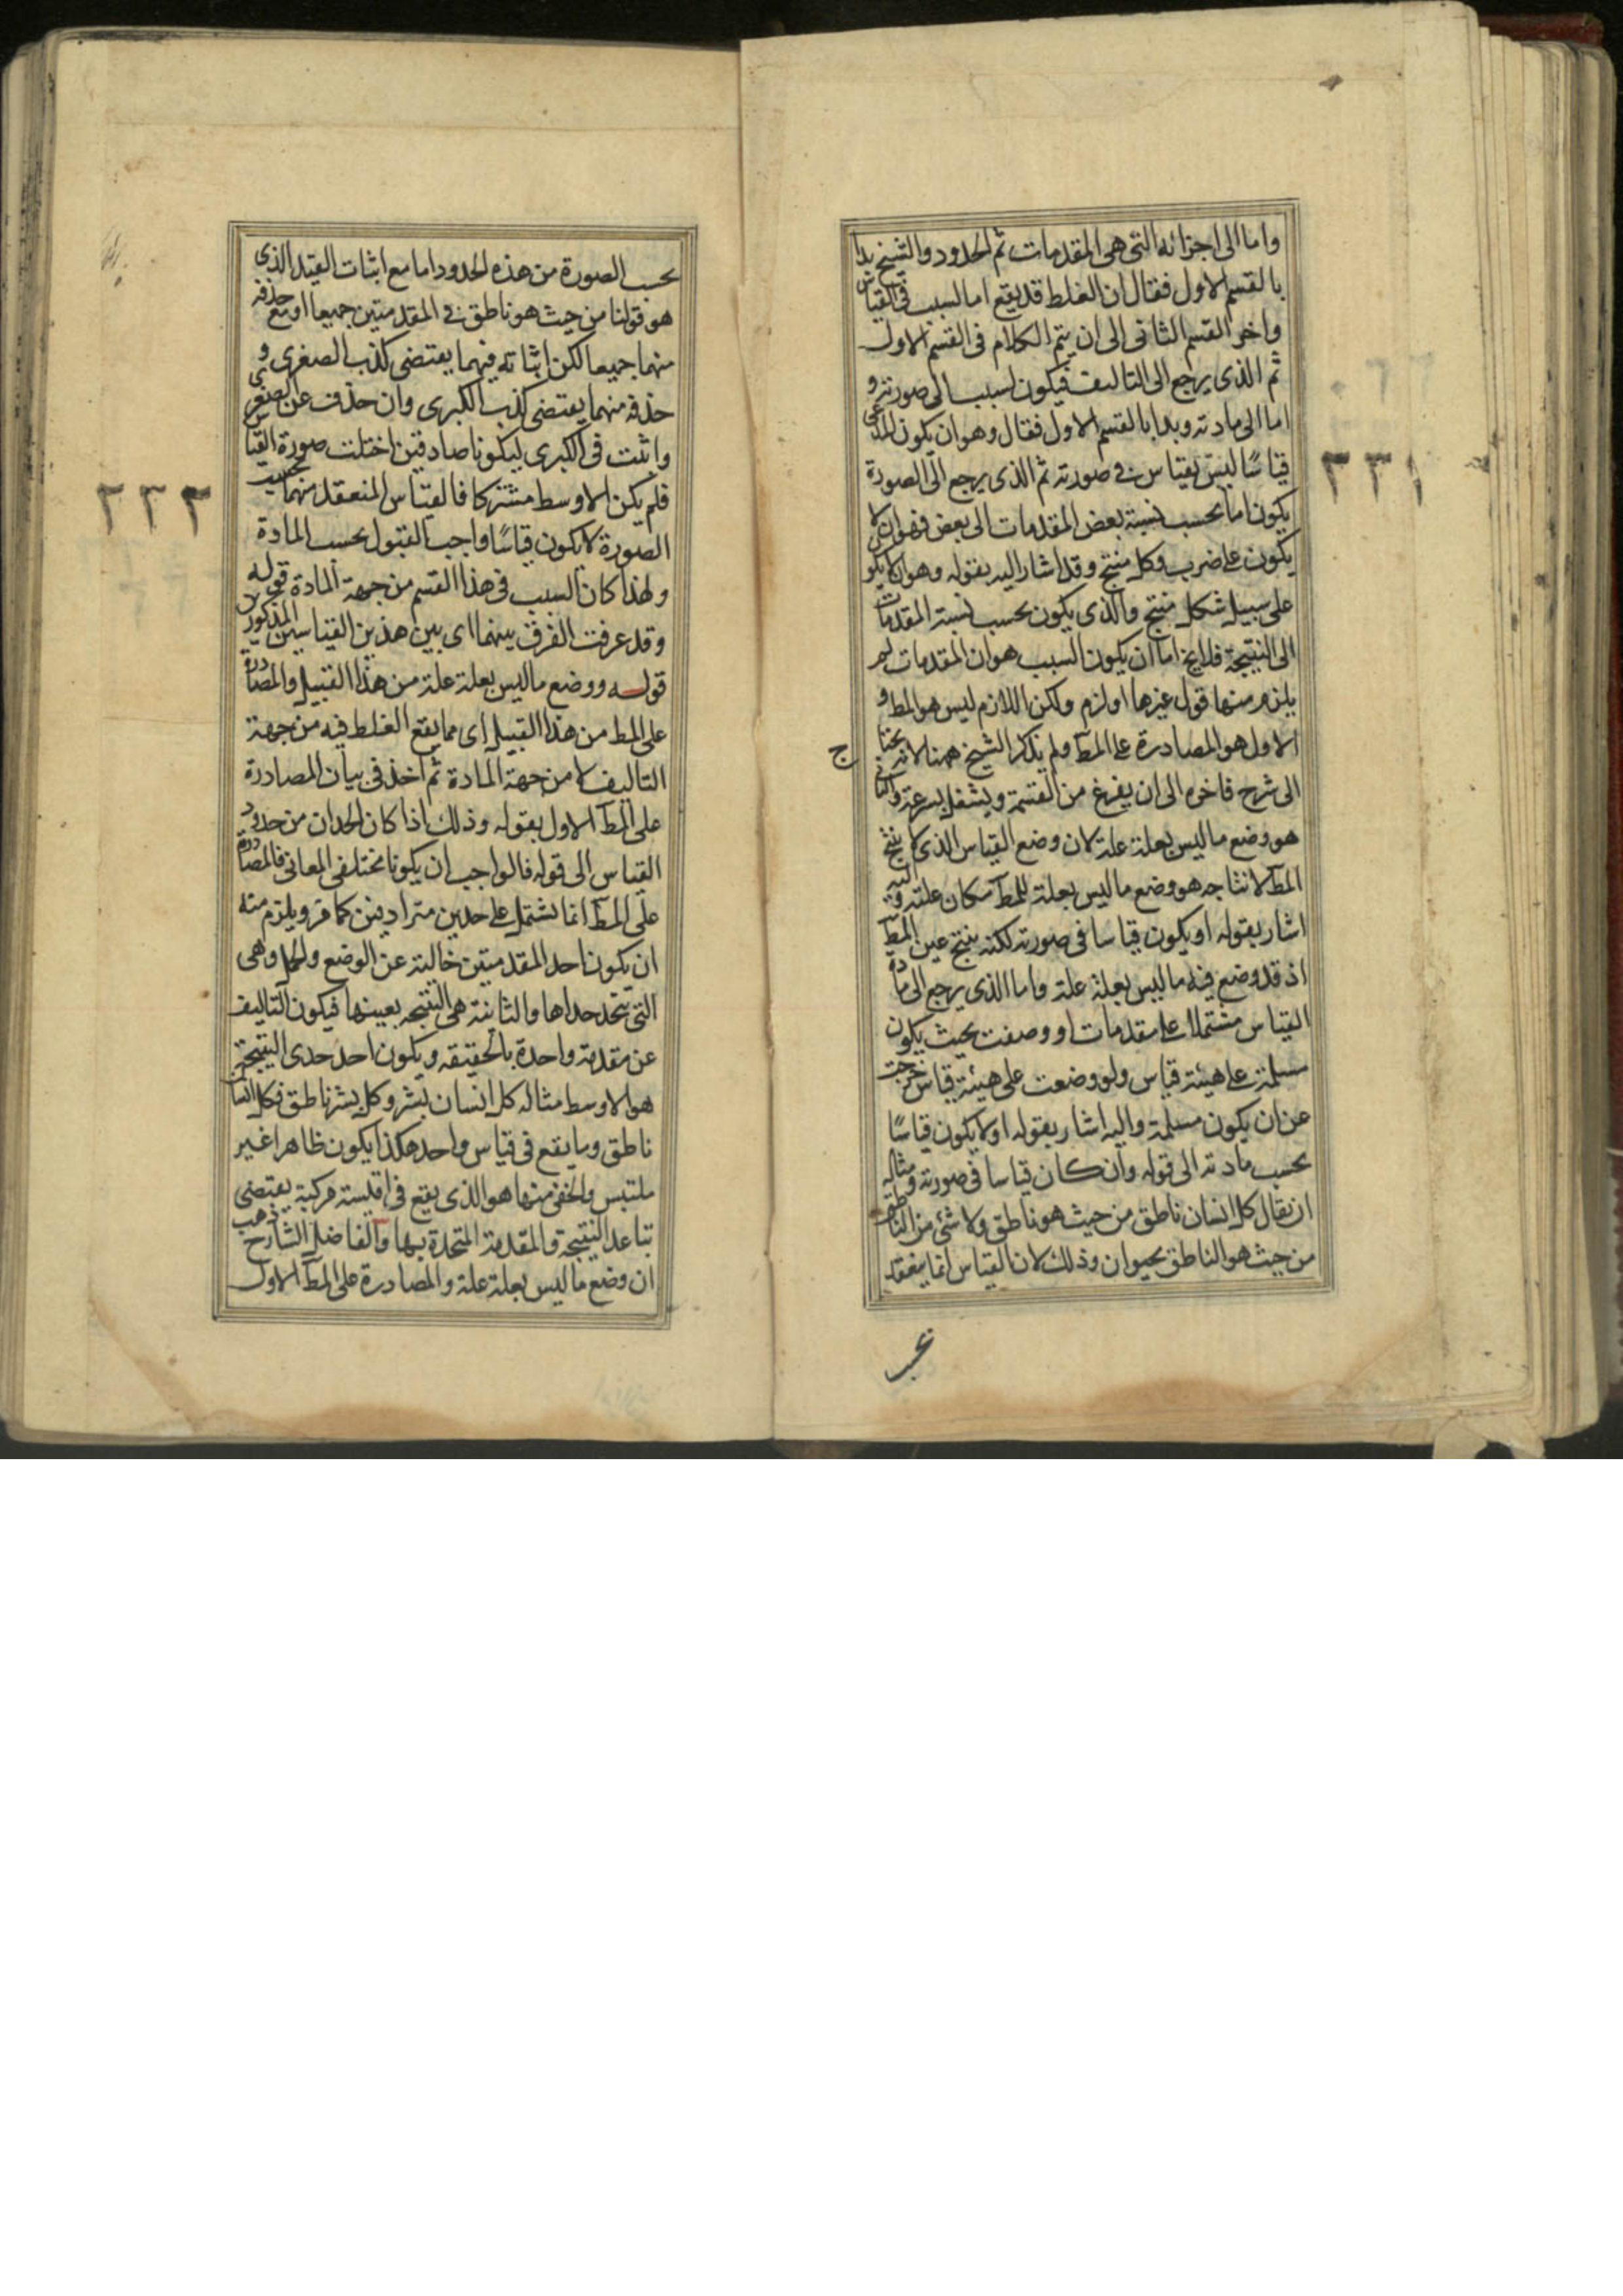 واما الى اجزائه التى هى المقدمات ثم الحدود والشيخ بدا
بالقسم الاول فقال ان الغلط قد يقع اما لسبب فى القياس
واخر القسم الثانى الى ان يتم الكلام فى القسم الاول
ثم الذى يرجع الى التاليف فيكون لسبب الى صورته و
اما الى مادته وبدا بالقسم الاول فقال وهو ان يكون المدعى
قياسًا ليس بقياس فى صورته ثم الذى يرجع الى الصورة
يكون اما بحسب نسبة بعض المقدمات الى بعض فهو ان لا
يكون على ضرب وكل منتج وقد اشار اليه بقوله وهو ان لا يكون
على سبيل شكل منتج والذى يكون بحسب نسبة المقدمات
الى النتيجة فلا يخ اما ان يكون السبب هو ان المقدمات لم
يلزم منها قول غيرها او لزم ولكن اللازم ليس هو المط و
الاول هو المصادرة على المط ولم يذكر الشيخ ههنا لانه يحتاج
الى شرح فاخره الى ان يفرغ من القسمة ويشغل بسرعة والثانى
هو وضع ما ليس بعلة علة لان وضع القياس الذى لا ينتج
المط لانتاجه هو وضع ما ليس بعلة للمط مكان علته واليه
اشار بقوله او يكون قياسا فى صورته لكنه ينتج غير المط
اذ قد وضع فيه ما ليس بعلة علة واما الذى يرجع الى مادة
القياس مشتملا على مقدمات او وصفت بحيث يكون
مسلمة على هيئة قياس ولو وضعت على هيئة قياس خرجت
عن ان يكون مسلمة واليه اشار بقوله او لا يكون قياسًا
بحسب مادته الى قوله وان كان قياسا فى صورته ومثاله
ان يقال كل انسان ناطق من حيث هو ناطق ولا شئ من الناطق
من حيث هو الناطق بحيوان وذلك لان القياس انما ينعقد
بحسب
٢٣١
بحسب الصورة من هذه الحدود اما مع اثبات القيد الذى
هو قولنا من حيث هو ناطق فى المقدمتين جميعا او مع حذفه
منهما جميعا لكن اثباته فيهما يقتضى كذب الصغرى و
حذفه منهما يقتضى كذب الكبرى وان حذف عن الصغرى
واثبت فى الكبرى ليكونا صادقين اختلت صورة القياس
فلم يكن الاوسط مشتركا فالقياس المنعقد منهما بحسب
الصورة لا يكون قياسًا واجب القبول بحسب المادة
ولهذا كان السبب فى هذا القسم من جهة المادة قوله
وقد عرفت الفرق بينهما اى بين هذين القياسين المذكورين
قوله ووضع ما ليس بعلة علة من هذا القبيل والمصادرة
على المط من هذا القبيل اى مما يقع الغلط فيه من جهة
التاليف لا من جهة المادة ثم اخذ فى بيان المصادرة
على المط الاول بقوله وذلك اذا كان الحدان من حدود
القياس الى قوله فالواجب ان يكونا مختلفى المعانى فالمصادرة
على المط انما يشتمل على حدين مترادفين كما مر ويلزم منه
ان يكون احد المقدمتين خالية عن الوضع والحمل وهى
التى يتحد حداها والثانية هى النتيجه بعينها فيكون التاليف
عن مقدمة واحدة بالحقيقه ويكون احد حدى النتيجة
هو الاوسط مثاله كل انسان بشر وكل بشر ناطق فكل انسان
ناطق وما يقع فى قياس واحد هكذا يكون ظاهرا غير
ملتبس والخفى منها هو الذى يقع فى اقيسة مركبة يقتضى
تباعد النتيجة والمقدمة المتحدة بها والفاضل الشارح ذهب
ان وضع ما ليس بعلة علة والمصادرة على المط الاول
٢٣٢